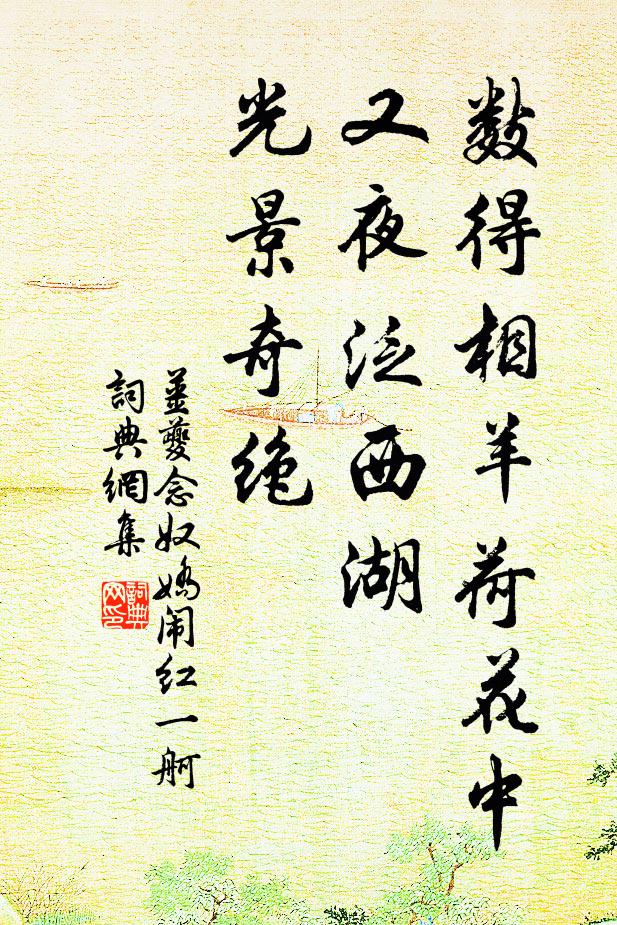 数得相羊荷花中
又夜泛西湖
光景奇绝
姜夔念奴娇闹红一舸
詞典網集
詞典
网印